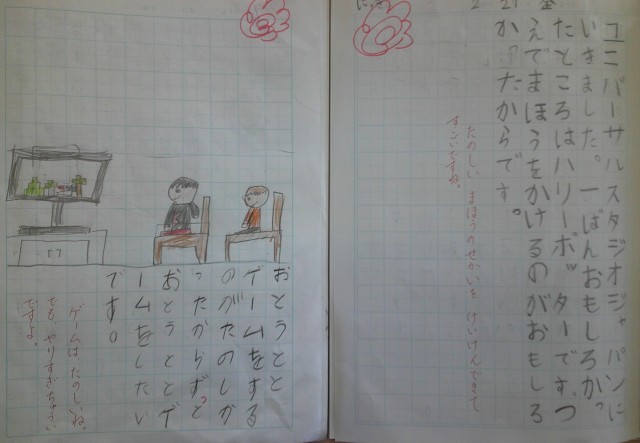 2 21 金
ユニバーサルスタジオジャパンに
いきました。一ばんおもしろかっ
たところはハリーポッターです。つ
えでまほうをかけるのがおもしろ
かったからです。
たのしい まほうのせかいを けいけんできて
すごいですね。
おとうとと
ゲームをする
のがたのしか
ったからずっと
おとうととゲ
ームをしたい
です。
ゲームは、たのしいね。
でも、やりすぎちゅうい
ですよ。